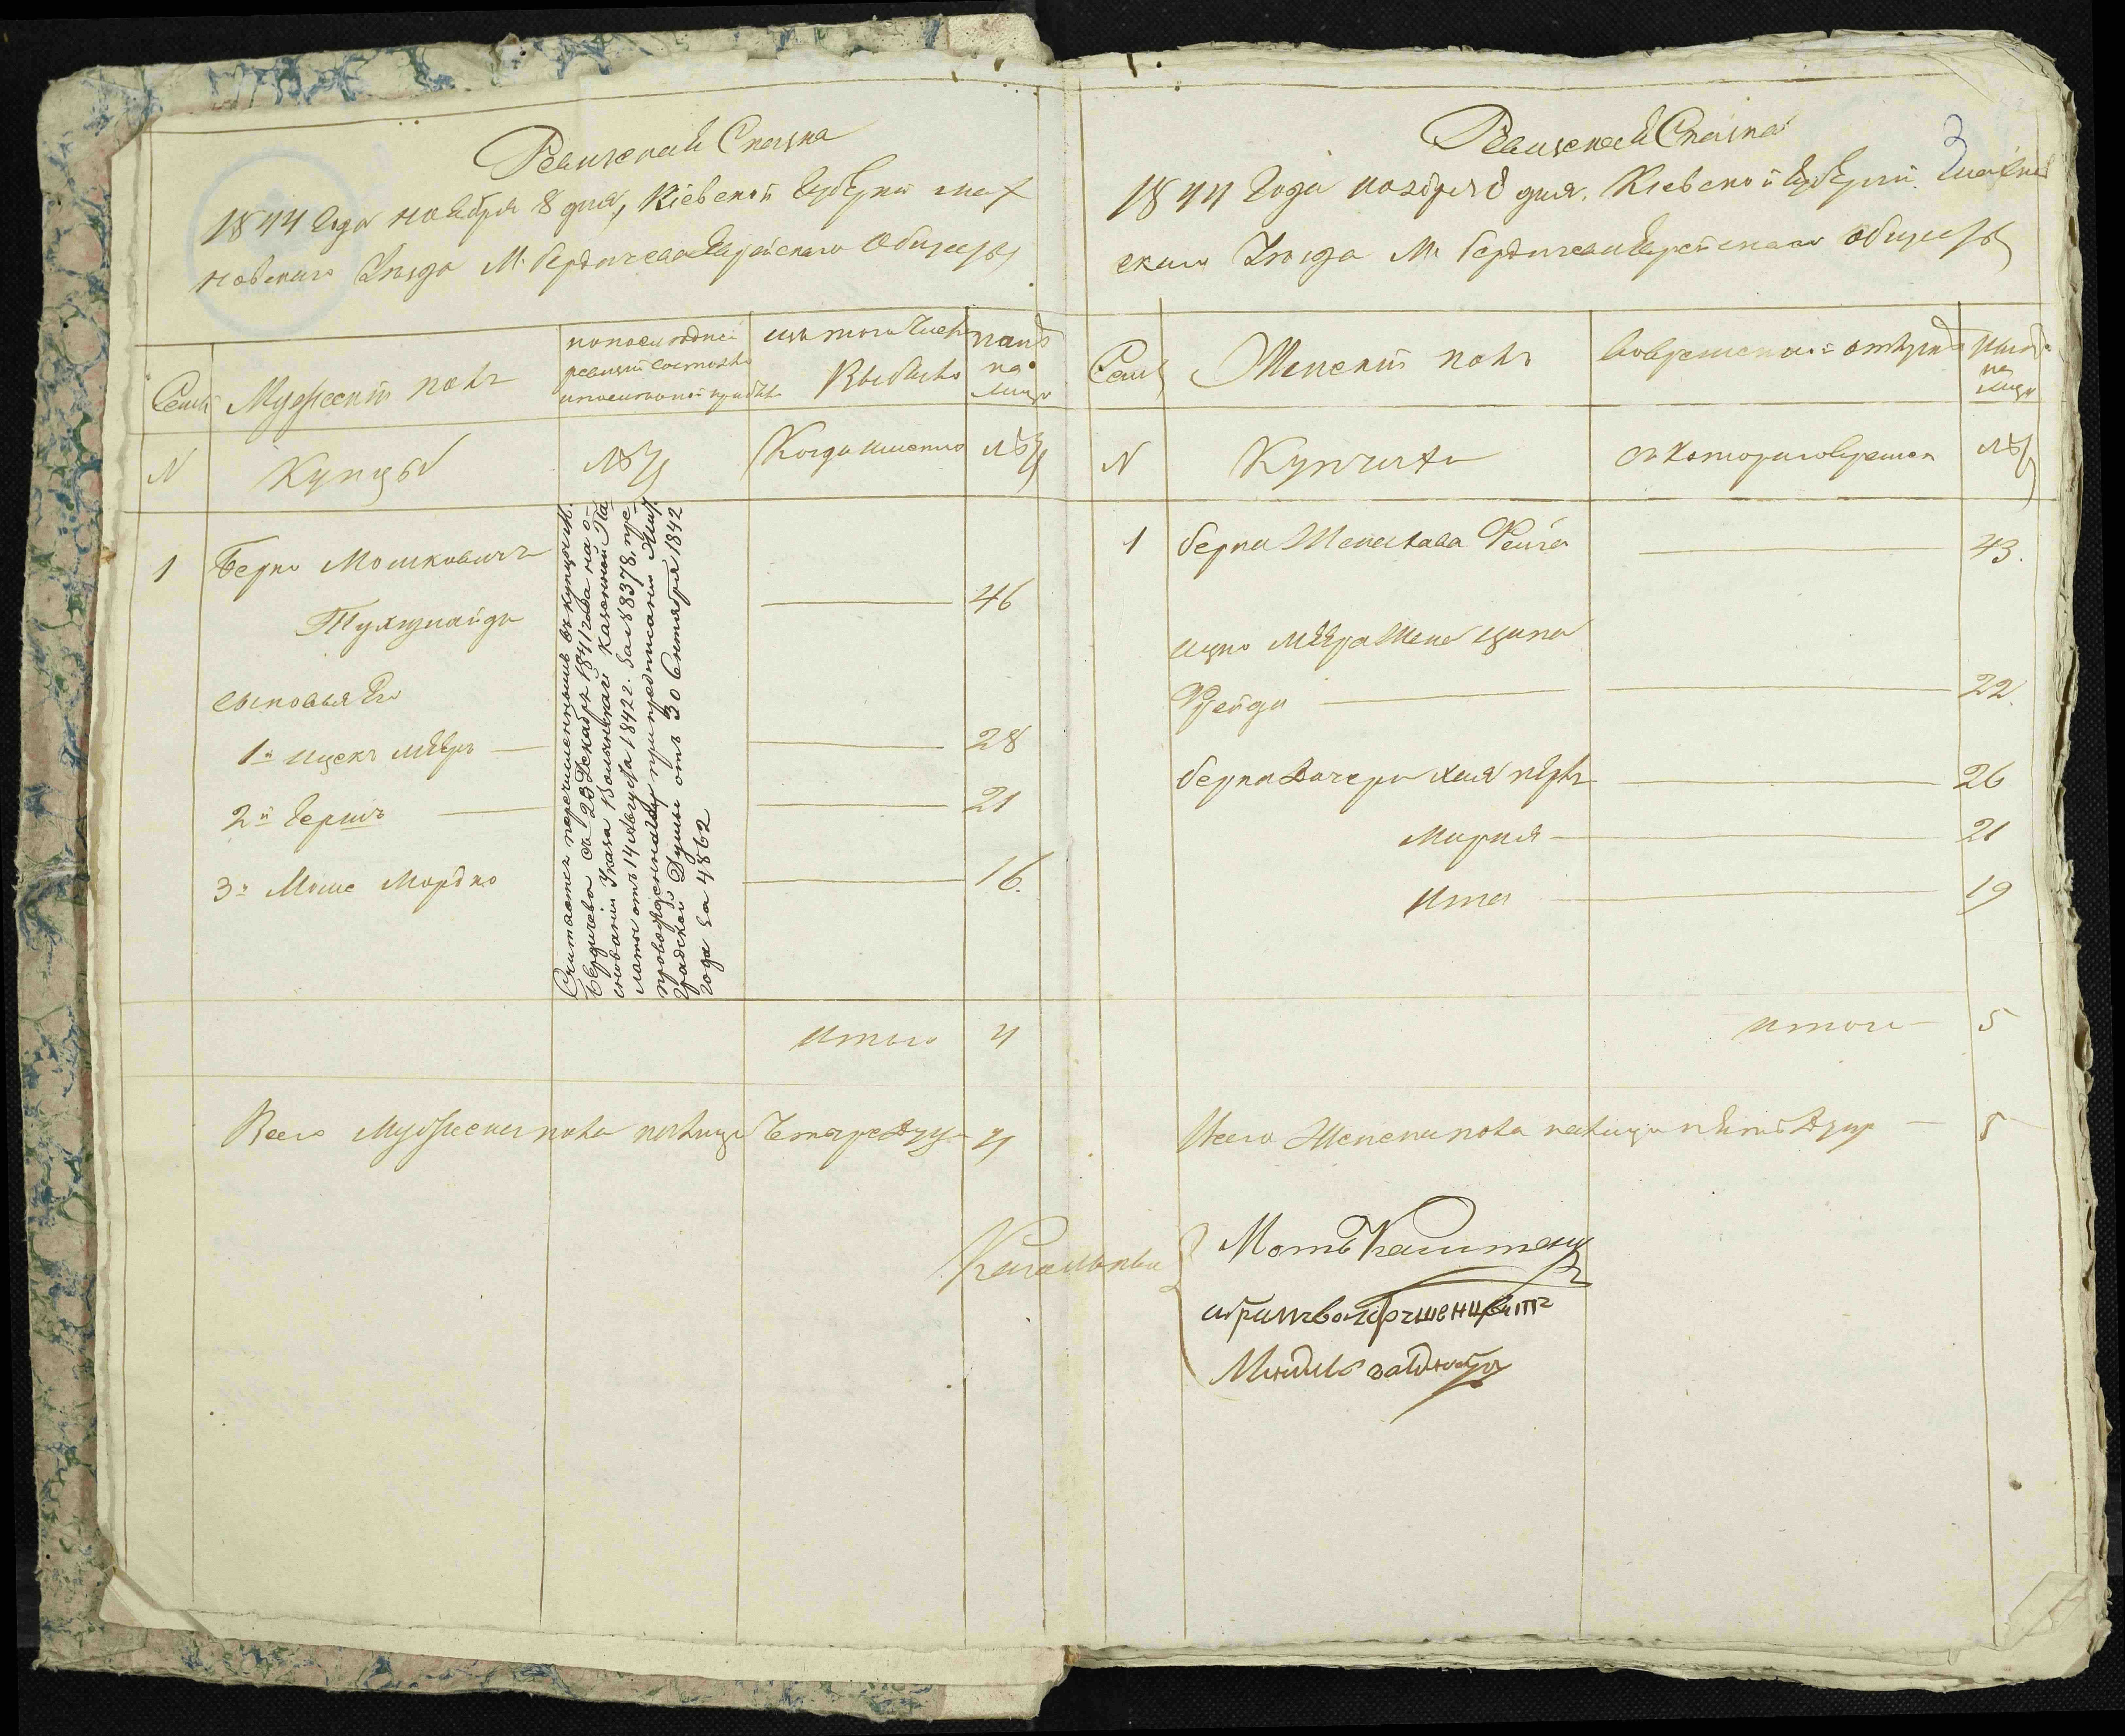 Ревизская Сказка
1844 Года Ноября 8 дня, Кіевской Губерніи мах
новскаго Уезда М. Бердичева Еврейскаго Общества
Семьи
Мужеский полъ
по последней
ревизии состояло
и после оной прибыло
изъ того числа
Выбыло
ныне
на
лицо
N
Купцы
Лета
Когда именно
Лета
Считается перечисленнымъ въ купцы м.
Бердичева съ 23 Декабря 1841 года на о-
сновании Указа Волынской Казенной Па
латы отъ 14 Августа 1842. за № 8378, пре
провожденнаго при предписании Жит.
градской Думы отъ 30 Сентября 1842
года за 4862
1
Берко Мошковичъ
46
сыновья Его
1й Ицекъ Меер
28
2й Герш
21
3й Моше Мордко
16.
Итого 4
Всего Мужеска пола налицо Четыре душ 4
2
Ревизская Сказка
1844 Года ноября 8 дня. Кіевской Губерніи Махнов
скаго Уезда М. Бердичева Еврейскаго Общества
Семьи
Женский полъ
Во временной отлучке
ныне
на
лицо
N
Купчихи
Съ котораго времени
Лета
1
Берка Жена Хава Фейга
43.
Ицко Меера Жена Ципа
Фрейда
22.
Берка Дочери Хая Перль
26
Мирля
21
Ита
19
итого 5
Всего Женска пола налицо пять душ 5
Кагальные